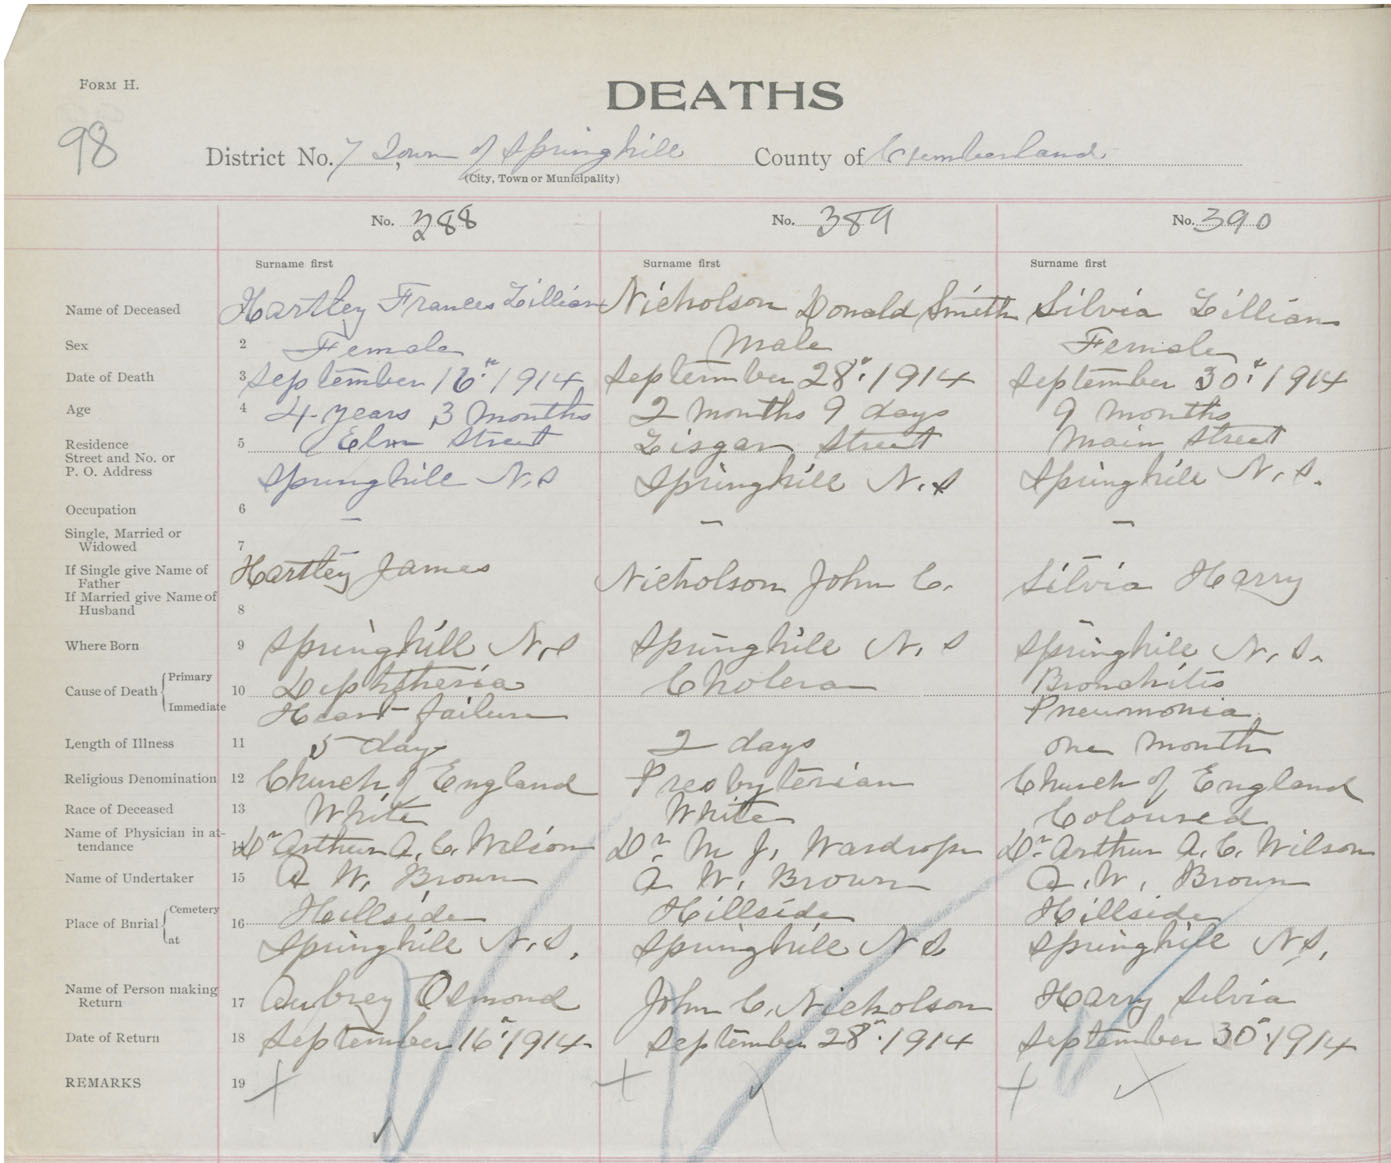 FORM H.
DEATHS
98
District No. 7 Town of Springhill County of Cumberland
(City, Town or Municipality)
No. 388 No. 389 No. 390
Surname first Surname first Surname first
Name of Deceased Hartley Frances Lillian Nicholson Donald Smith Silvia Lillian
Sex 2 Female Male Female
Date of Death 3 September 16th 1914 September 28th 1914 September 30th 1914
Age 4 4 years 3 months 2 months 9 days 9 months
Residence 5 Elm Street Lisgar Street Main Street
Street and No. or
P. O. Address Springhill N.S Springhill N.S Springhill N.S.
Occupation 6 – – –
Single, Married or
Widowed 7
If Single give Name of
Father Hartley James Nicholson John C. Silvia Harry
If Married give Name of
Husband 8
Where Born 9 Springhill N.S Springhill N.S Springhill N.S.
Cause of Death { Primary 10 Diphtheria Cholera Bronchitis
Immediate Heart failure Pneumonia
Length of Illness 11 5 days 2 days one month
Religious Denomination 12 Church of England Presbyterian Church of England
Race of Deceased 13 White White Coloured
Name of Physician in at-
tendance 14 Dr Arthur A. C. Wilson Dr. M J. Wardrope Dr. Arthur A. C. Wilson
Name of Undertaker 15 A W. Brown A W. Brown A. W. Brown
Place of Burial { Cemetery 16 Hillside Hillside Hillside
at Springhill N.S. Springhill N S. Springhill N S.
Name of Person making
Return 17 Aubrey Osmond John C. Nicholson Harry Silvia
Date of Return 18 September 16th 1914 September 28th 1914 September 30th 1914
REMARKS 19